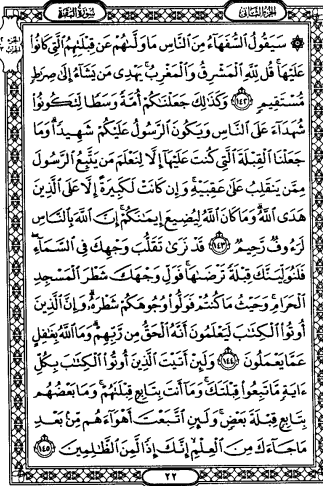 سورة البقرة
الجزء الثاني
۞ سَيَقُولُ السُّفَهَاءُ مِنَ النَّاسِ مَا وَلَّىٰهُمْ عَن قِبْلَتِهِمُ الَّتِي كَانُوا
عَلَيْهَا قُل لِّلَّهِ الْمَشْرِقُ وَالْمَغْرِبُ يَهْدِي مَن يَشَاءُ إِلَىٰ صِرَٰطٍ
مُّسْتَقِيمٍ ١٤٢ وَكَذَٰلِكَ جَعَلْنَٰكُمْ أُمَّةً وَسَطًا لِّتَكُونُوا
شُهَدَاءَ عَلَى النَّاسِ وَيَكُونَ الرَّسُولُ عَلَيْكُمْ شَهِيدًا وَمَا
جَعَلْنَا الْقِبْلَةَ الَّتِي كُنتَ عَلَيْهَا إِلَّا لِنَعْلَمَ مَن يَتَّبِعُ الرَّسُولَ
مِمَّن يَنقَلِبُ عَلَىٰ عَقِبَيْهِ وَإِن كَانَتْ لَكَبِيرَةً إِلَّا عَلَى الَّذِينَ
هَدَى اللَّهُ وَمَا كَانَ اللَّهُ لِيُضِيعَ إِيمَٰنَكُمْ إِنَّ اللَّهَ بِالنَّاسِ
لَرَءُوفٌ رَّحِيمٌ ١٤٣ قَدْ نَرَىٰ تَقَلُّبَ وَجْهِكَ فِي السَّمَاءِ
فَلَنُوَلِّيَنَّكَ قِبْلَةً تَرْضَىٰهَا فَوَلِّ وَجْهَكَ شَطْرَ الْمَسْجِدِ
الْحَرَامِ وَحَيْثُ مَا كُنتُمْ فَوَلُّوا وُجُوهَكُمْ شَطْرَهُ وَإِنَّ الَّذِينَ
أُوتُوا الْكِتَٰبَ لَيَعْلَمُونَ أَنَّهُ الْحَقُّ مِن رَّبِّهِمْ وَمَا اللَّهُ بِغَٰفِلٍ
عَمَّا يَعْمَلُونَ ١٤٤ وَلَئِنْ أَتَيْتَ الَّذِينَ أُوتُوا الْكِتَٰبَ بِكُلِّ
ءَايَةٍ مَّا تَبِعُوا قِبْلَتَكَ وَمَا أَنتَ بِتَابِعٍ قِبْلَتَهُمْ وَمَا بَعْضُهُم
بِتَابِعٍ قِبْلَةَ بَعْضٍ وَلَئِنِ اتَّبَعْتَ أَهْوَاءَهُم مِّن بَعْدِ
مَا جَاءَكَ مِنَ الْعِلْمِ إِنَّكَ إِذًا لَّمِنَ الظَّٰلِمِينَ ١٤٥
٢٢